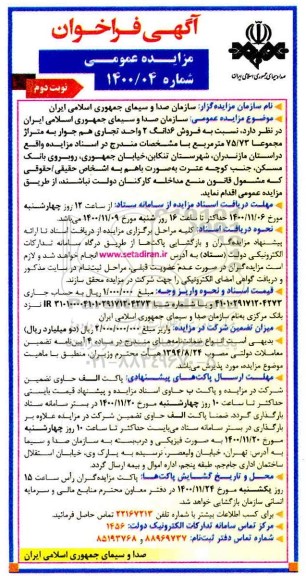 آگهی فراخوان
مزایده عمومی
شماره ۱۴۰۰/۰۴
نوبت دوم
صدا و سیمای جمهوری اسلامی ایران
نام سازمان مزایده‌گزار: سازمان صدا و سیمای جمهوری اسلامی ایران
موضوع مزایده عمومی: سازمان صدا و سیمای جمهوری اسلامی ایران
در نظر دارد، نسبت به فروش ۶دانگ ۲ واحد تجاری هم جوار به متراژ
مجموعا ۷۵/۷۳ مترمربع با مشخصات مندرج در اسناد مزایده واقع
در استان مازندران، شهرستان تنکابن، خیابان جمهوری، روبروی بانک
مسکن، جنب کوچه عترت به‌صورت باهم به اشخاص حقیقی/حقوقی
که مشمول قانون منع مداخله کارکنان دولت نباشند، از طریق
مزایده عمومی اقدام نماید.
مهلت دریافت اسناد مزایده از سامانه ستاد: از ساعت ۱۲ روز چهارشنبه
مورخ ۱۴۰۰/۱۱/۰۶ حداکثر تا ساعت ۱۶ روز شنبه مورخ ۱۴۰۰/۱۱/۰۹ می‌باشد.
نحوه دریافت اسناد: کلیه مراحل برگزاری مزایده از دریافت اسناد تا ارائه
پیشنهاد مزایده‌گران و بازگشایی پاکت‌ها از طریق درگاه سامانه تدارکات
الکترونیکی دولت (ستاد) به آدرس www.setadiran.ir انجام خواهد شد و لازم
است مزایده‌گران در صورت عدم عضویت قبلی، مراحل ثبت‌نام در سایت مذکور
و دریافت گواهی امضای الکترونیکی را جهت شرکت در مزایده محقق سازند.
قیمت اسناد و نحوه واریز وجه: مبلغ ۱/۰۰۰/۰۰۰ ریال به حساب جاری
نزد
بانک مرکزی به‌نام سازمان صدا و سیمای جمهوری اسلامی ایران
میزان تضمین شرکت در مزایده: واریز مبلغ ۲/۰۰۰/۰۰۰/۰۰۰ ریال (دو میلیارد ریال)
بدیهی است انواع ضمانت‌نامه‌های مندرج در ماده ۴ آیین‌نامه تضمین
معاملات دولتی مصوب ۱۳۹۴/۸/۲۴ هیأت محترم وزیران، منطبق با ماهیت
موضوع مزایده، مورد پذیرش می‌باشد.
مهلت ارسال پاکت‌های پیشنهادی: پاکت الف حاوی تضمین
شرکت در مزایده و پاکت ب حاوی اسناد مزایده و پیشنهاد قیمت بایستی
حداکثر تا ساعت ۱۰ روز چهارشنبه مورخ ۱۴۰۰/۱۱/۲۰ در بستر سامانه ستاد
بارگذاری گردد. ضمنا پاکت الف حاوی تضمین شرکت در مزایده علاوه بر
بارگذاری در بستر سامانه ستاد می‌بایست حداکثر تا ساعت ۱۰ روز چهارشنبه
مورخ ۱۴۰۰/۱۱/۲۰ به صورت فیزیکی و درب‌بسته به سازمان صدا و سیما
به آدرس: تهران، خیابان ولیعصر، نرسیده به پارک وی، خیابان استقلال
ساختمان اداری جام‌جم، طبقه پنجم، اداره اموال و بیمه ارسال گردد.
محل و تاریخ گشایش پاکت‌ها: پاکت مزایده‌گران رأس ساعت ۱۵
روز یکشنبه مورخ ۱۴۰۰/۱۱/۲۴ در دفتر معاون محترم منابع مالی و سرمایه
انسانی سازمان بازگشایی خواهد شد.
برای کسب اطلاعات بیشتر با شماره تلفن ۲۲۱۶۷۲۱۳ تماس حاصل فرمائید.
مرکز تماس سامانه تدارکات الکترونیک دولت: ۱۴۵۶
شماره تماس دفتر ثبت‌نام: ۸۸۹۶۹۷۳۷ و ۸۵۱۹۳۷۶۸
صدا و سیمای جمهوری اسلامی ایران